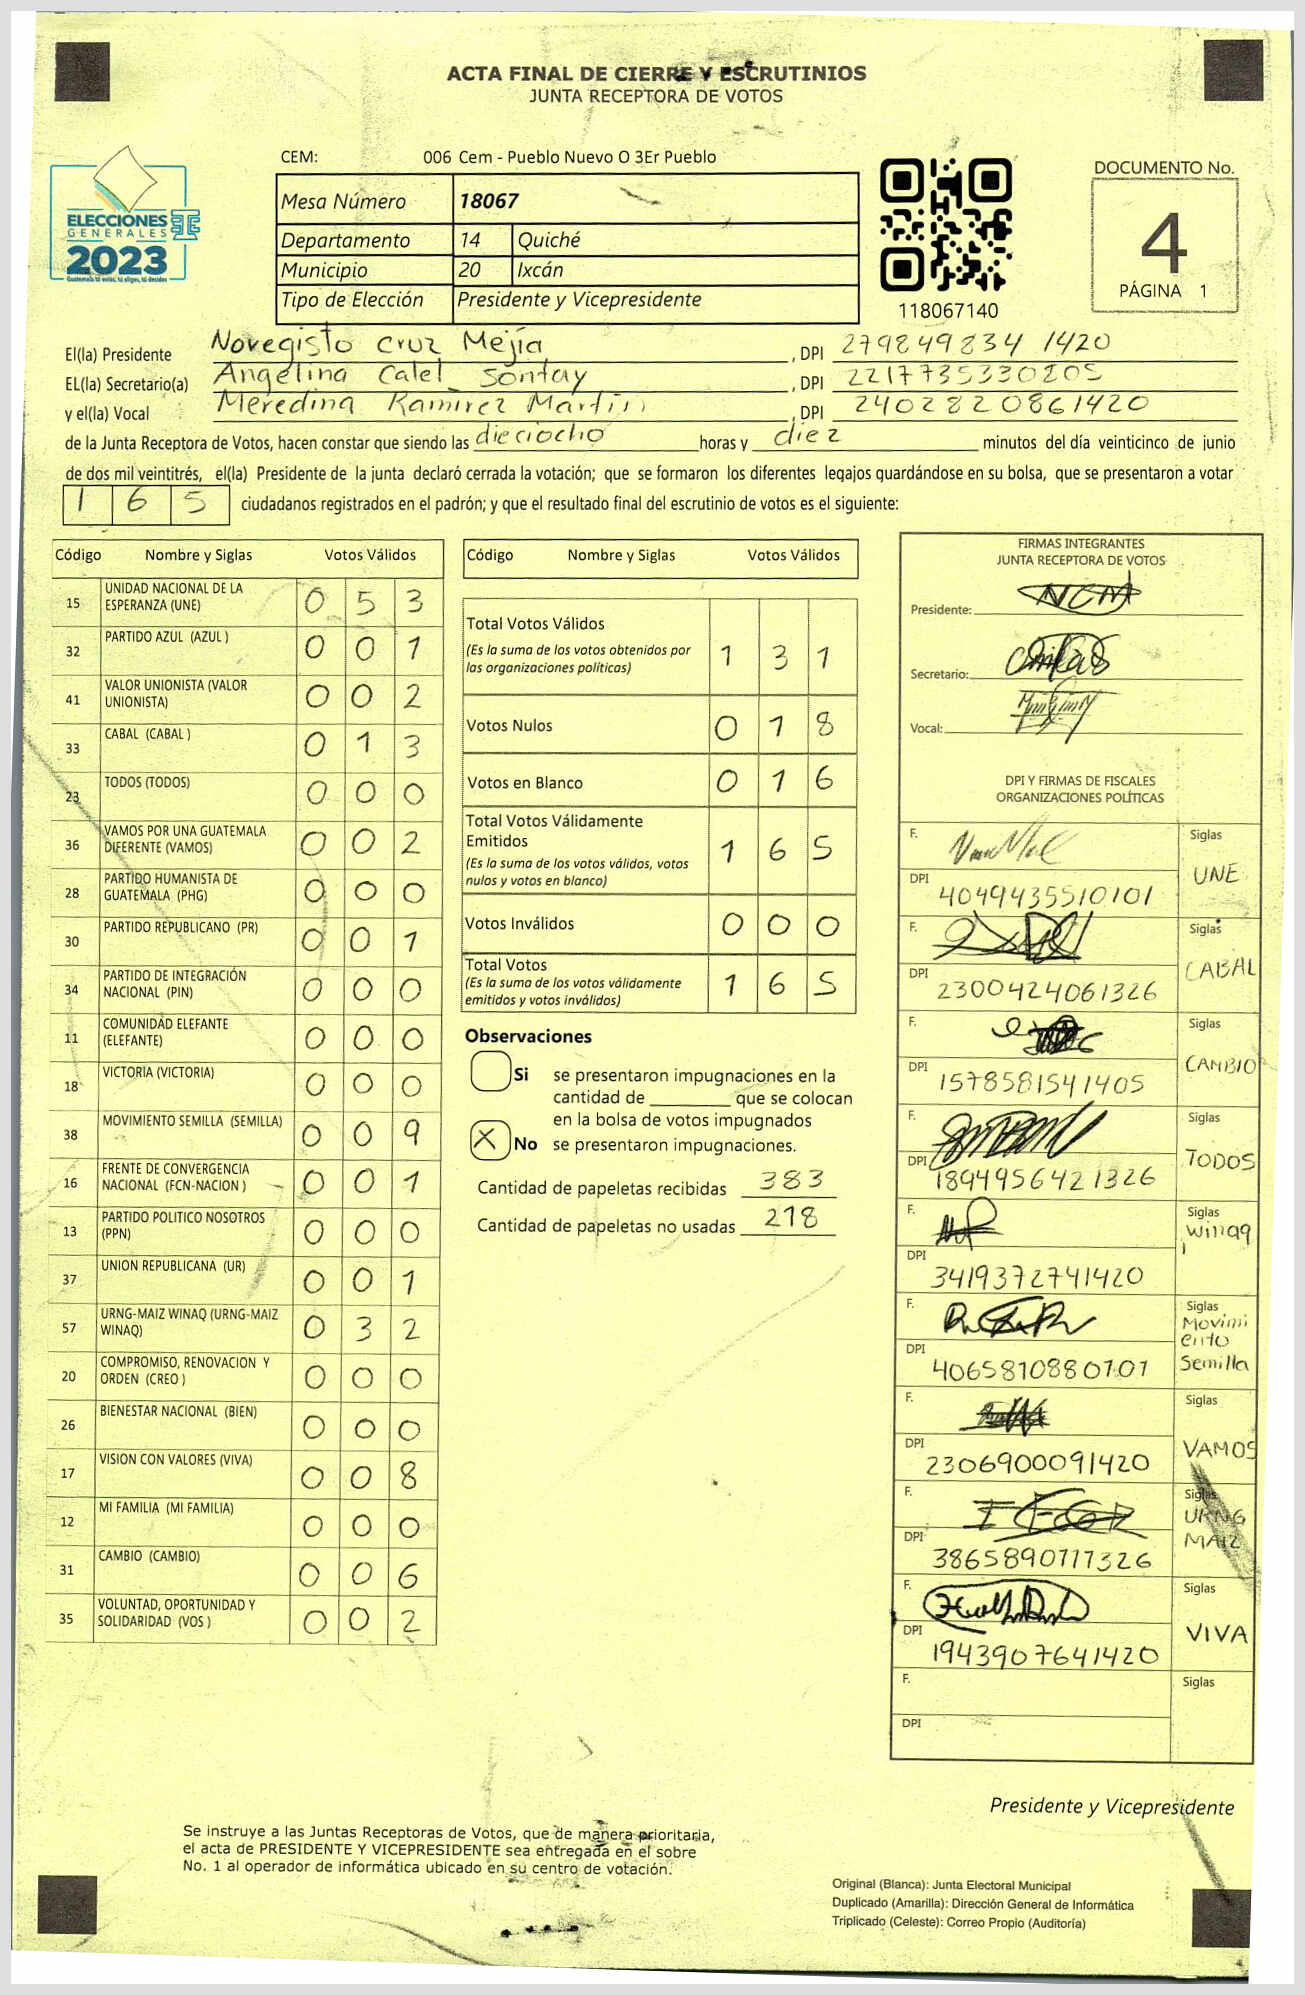 ACTA FINAL DE CIERRE Y ESCRUTINIOS
JUNTA RECEPTORA DE VOTOS
ELECCIONES
GENERALES
2023
Guatemala tú votas, tú eliges, tú decides
CEM: 006 Cem - Pueblo Nuevo O 3Er Pueblo
Mesa Número 18067
Departamento 14 Quiché
Municipio 20 Ixcán
Tipo de Elección Presidente y Vicepresidente
118067140
DOCUMENTO No.
4
PÁGINA 1
El(la) Presidente Novegisto Cruz Mejía , DPI 279849834 1420
EL(la) Secretario(a) Angelina Calel Sontay , DPI 2217735330205
y el(la) Vocal Meredina Ramirez Martin , DPI 2402820861420
de la Junta Receptora de Votos, hacen constar que siendo las dieciocho horas y diez minutos del día veinticinco de junio
de dos mil veintitrés, el(la) Presidente de la junta declaró cerrada la votación; que se formaron los diferentes legajos guardándose en su bolsa, que se presentaron a votar
1 6 5 ciudadanos registrados en el padrón; y que el resultado final del escrutinio de votos es el siguiente:
Código Nombre y Siglas Votos Válidos
15 UNIDAD NACIONAL DE LA
ESPERANZA (UNE) 0 5 3
32 PARTIDO AZUL (AZUL ) 0 0 1
41 VALOR UNIONISTA (VALOR
UNIONISTA) 0 0 2
33 CABAL (CABAL ) 0 1 3
23 TODOS (TODOS) 0 0 0
36 VAMOS POR UNA GUATEMALA
DIFERENTE (VAMOS) 0 0 2
28 PARTIDO HUMANISTA DE
GUATEMALA (PHG) 0 0 0
30 PARTIDO REPUBLICANO (PR) 0 0 1
34 PARTIDO DE INTEGRACIÓN
NACIONAL (PIN) 0 0 0
11 COMUNIDAD ELEFANTE
(ELEFANTE) 0 0 0
18 VICTORIA (VICTORIA) 0 0 0
38 MOVIMIENTO SEMILLA (SEMILLA) 0 0 9
16 FRENTE DE CONVERGENCIA
NACIONAL (FCN-NACION ) 0 0 1
13 PARTIDO POLITICO NOSOTROS
(PPN) 0 0 0
37 UNION REPUBLICANA (UR) 0 0 1
57 URNG-MAIZ WINAQ (URNG-MAIZ
WINAQ) 0 3 2
20 COMPROMISO, RENOVACION Y
ORDEN (CREO ) 0 0 0
26 BIENESTAR NACIONAL (BIEN) 0 0 0
17 VISION CON VALORES (VIVA) 0 0 8
12 MI FAMILIA (MI FAMILIA) 0 0 0
31 CAMBIO (CAMBIO) 0 0 6
35 VOLUNTAD, OPORTUNIDAD Y
SOLIDARIDAD (VOS ) 0 0 2
Código Nombre y Siglas Votos Válidos
Total Votos Válidos
(Es la suma de los votos obtenidos por
las organizaciones políticas) 1 3 1
Votos Nulos 0 1 8
Votos en Blanco 0 1 6
Total Votos Válidamente
Emitidos
(Es la suma de los votos válidos, votos
nulos y votos en blanco) 1 6 5
Votos Inválidos 0 0 0
Total Votos
(Es la suma de los votos válidamente
emitidos y votos inválidos) 1 6 5
Observaciones
Si se presentaron impugnaciones en la
cantidad de ________ que se colocan
en la bolsa de votos impugnados
X No se presentaron impugnaciones.
Cantidad de papeletas recibidas 383
Cantidad de papeletas no usadas 218
FIRMAS INTEGRANTES
JUNTA RECEPTORA DE VOTOS
Presidente: NCM
Secretario:
Vocal:
DPI Y FIRMAS DE FISCALES
ORGANIZACIONES POLÍTICAS
F. Siglas
UNE
DPI 4049435510101
F. Siglas
CABAL
DPI 2300424061326
F. Siglas
CAMBIO
DPI 1578581541405
F. Siglas
TODOS
DPI 1894956421326
F. Siglas
Winaq
DPI 3419372741420
F. Siglas
Movimi
ento
Semilla
DPI 4065810880101
F. Siglas
VAMOS
DPI 2306900091420
F. Siglas
URNG
MAIZ
DPI 3865890717326
F. Siglas
VIVA
DPI 1943907641420
F. Siglas
DPI
Presidente y Vicepresidente
Se instruye a las Juntas Receptoras de Votos, que de manera prioritaria,
el acta de PRESIDENTE Y VICEPRESIDENTE sea entregada en el sobre
No. 1 al operador de informática ubicado en su centro de votación.
Original (Blanca): Junta Electoral Municipal
Duplicado (Amarilla): Dirección General de Informática
Triplicado (Celeste): Correo Propio (Auditoría)